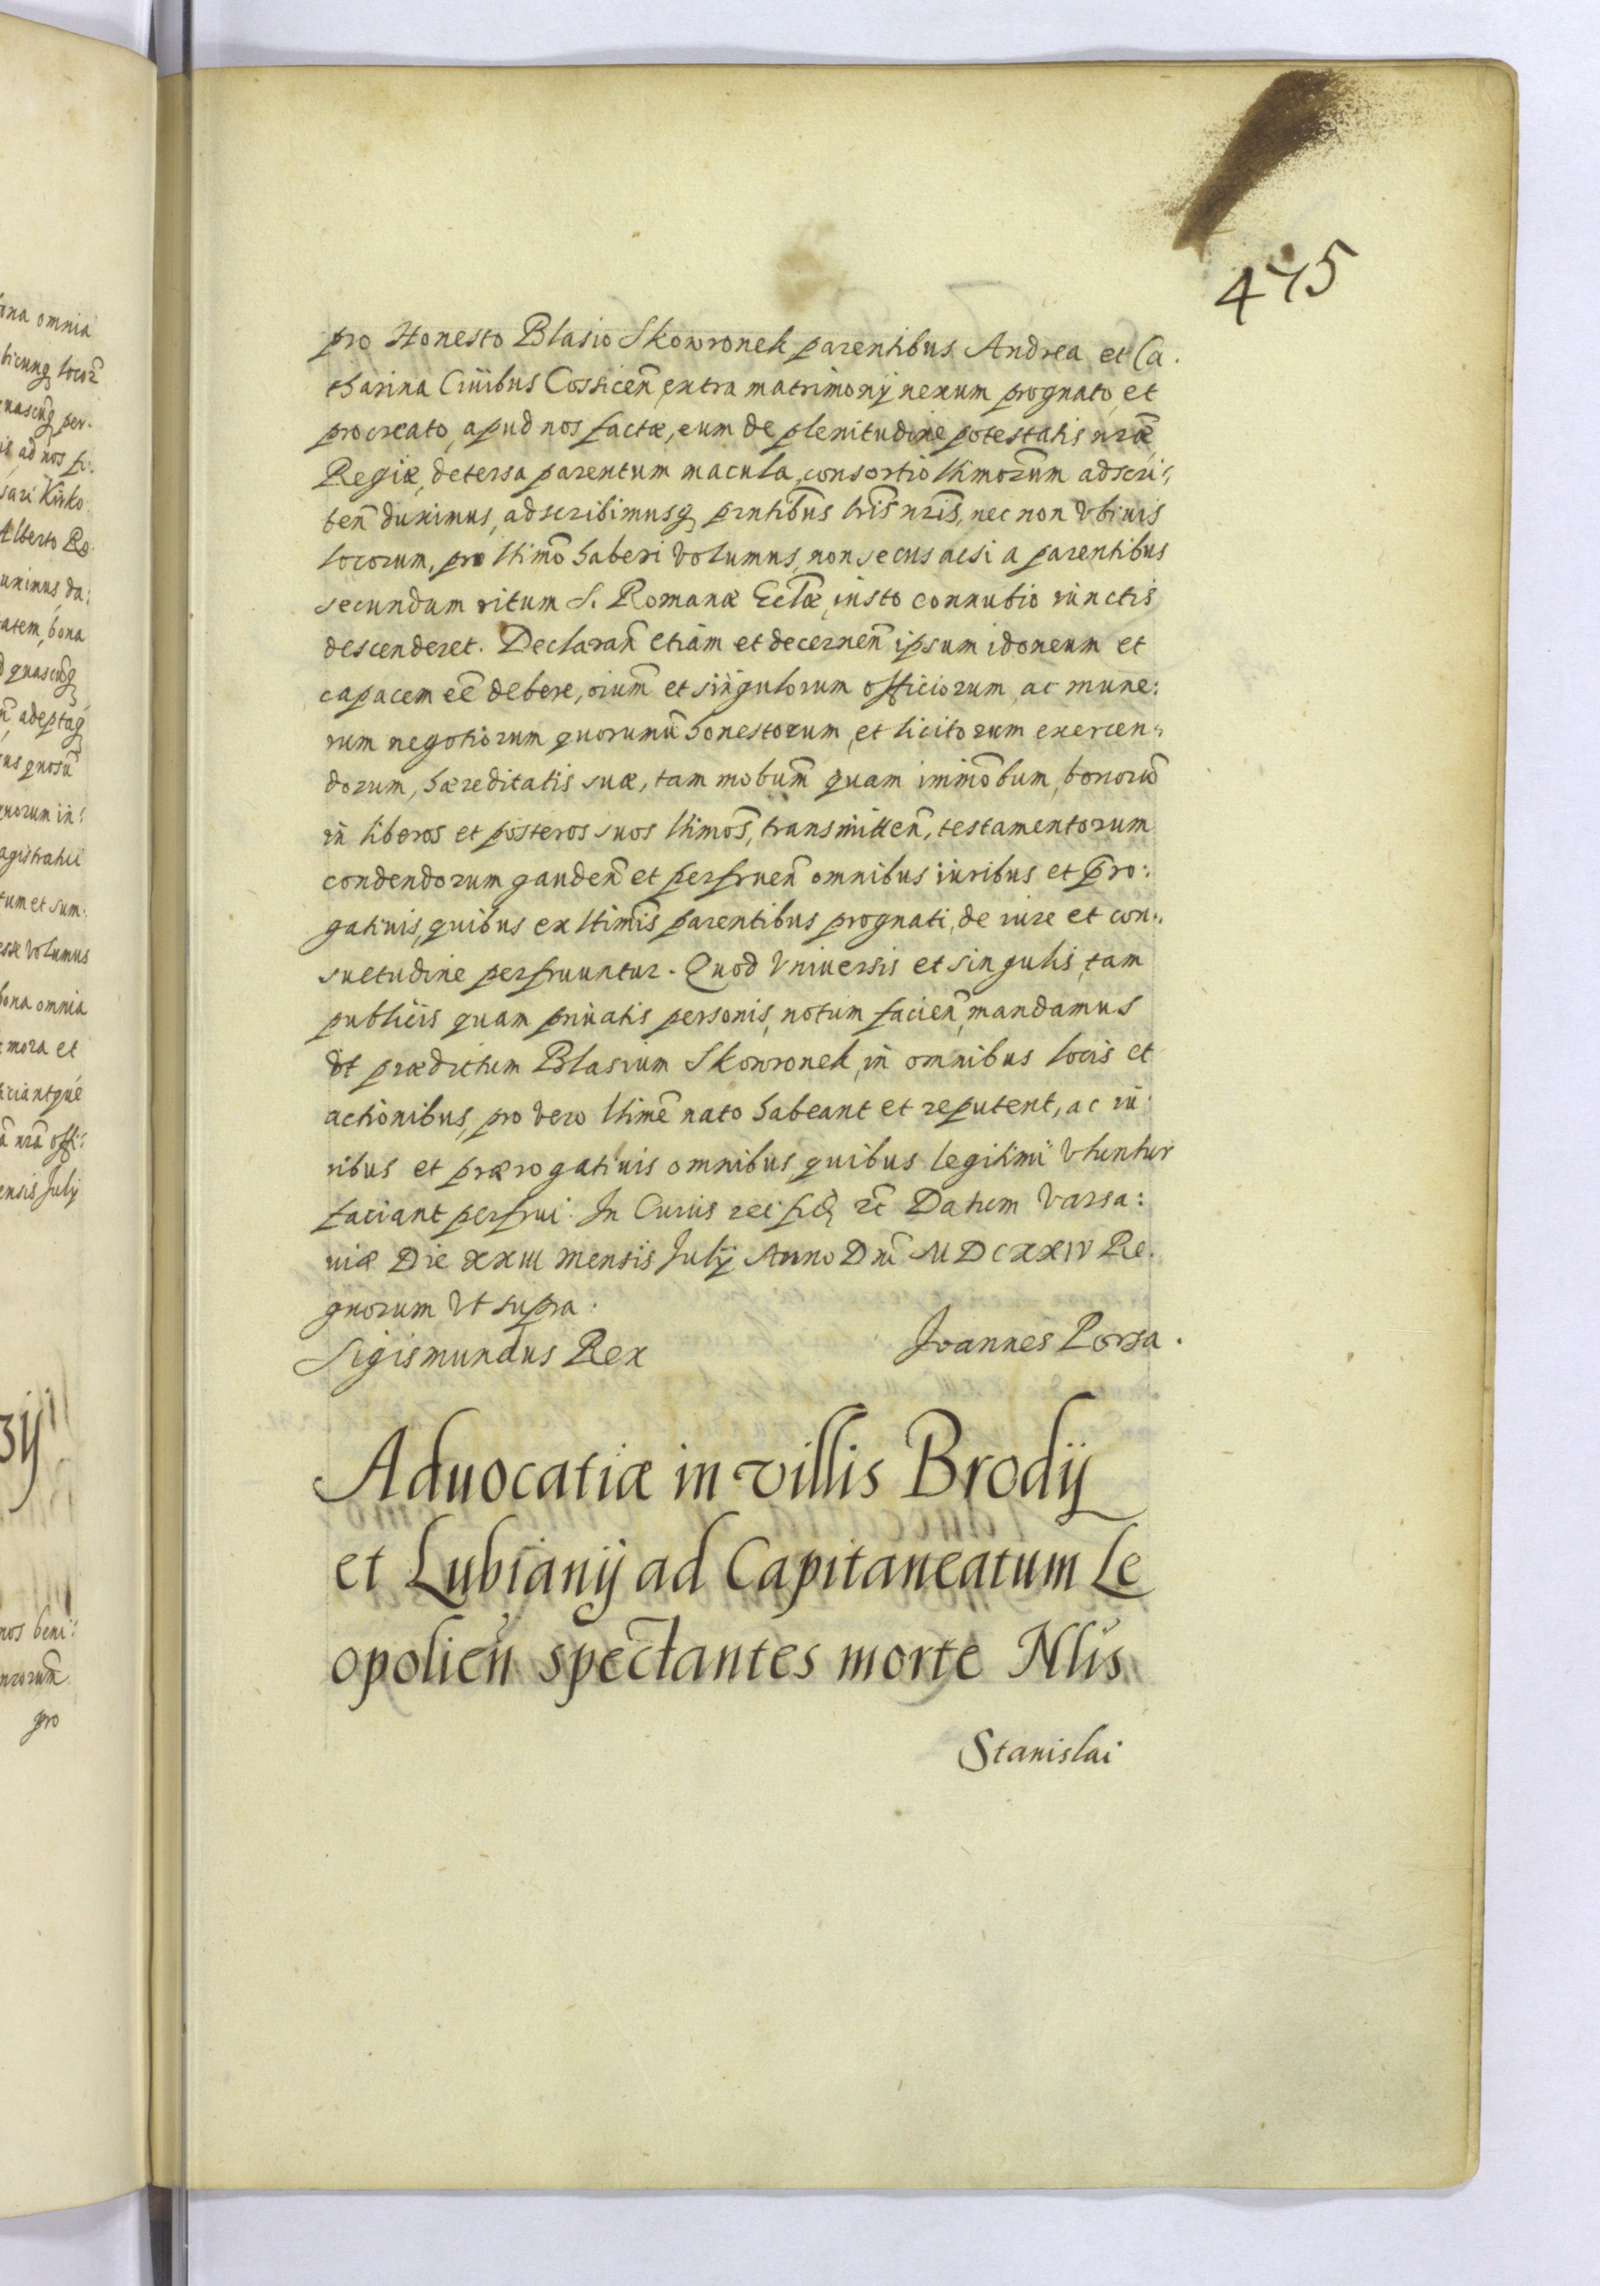 475
pro Honesto Blasio Skowronek parentibus Andrea et Ca.
tharina Civibus Cossicen̄ extra matrimonij nexum prognato, et
procreato, apud nos factæ, eum de plenitudine potestatis nr̄æ
Regiæ, detersa parentum macula, consortio ltimor̄um adscri:
ben̄ duximus, adscribimusq̃ pr̄ntib̄us lr̄is nr̄is, nec non vbiuis
locorum, pro ltimō haberi volumus, non secus acsi a parentibus
secundum ritum S. Romanæ Eccl̄æ, iusto connubio iunctis
descenderet. Declaran̄ etiam et decernen̄ ipsum idoneum et
capacem eē debere, oium̄ et singulorum officiorum, ac mune:
rum negotiorum quorumuī honestorum, et licitorum exercen:
dorum, hæreditatis suæ, tam mobum̄ quam immōbum, bonorū
in liberos et posteros suos ltimōs, transmitten̄, testamentorum
condendorum gauden̄ et perfruen̄ omnibus iuribus et p̄ro:
gatiuis, quibus ex ltimīs parentibus prognati, de iure et con:
suetudine perfruuntur. Quod vniuersis et singulis, tam
publicis quam priuatis personis, notum facien̄, mandamus
vt prædictum Blasium Skowronek, in omnibus locis et
actionibus, pro vero ltimē nato habeant et reputent, ac iu:
ribus et prærogatiuis omnibus quibus legitimi vtuntur
faciant perfrui. In Cuius rei fid̃ etc̄ Datum Varsa:
uiæ Die XXIII Mensis Julij Anno Dn̄i MDCXXIV Re.
gnorum vt supra.
Sigismundus Rex Joannes Borza.
Aduocatiæ in villis Brodij
et Lubianij ad Capitaneatum Le
opolien̄ spectantes morte Nl̄is
Stanislai
ona omnia
bona omnia
mora et
ensis July
pro